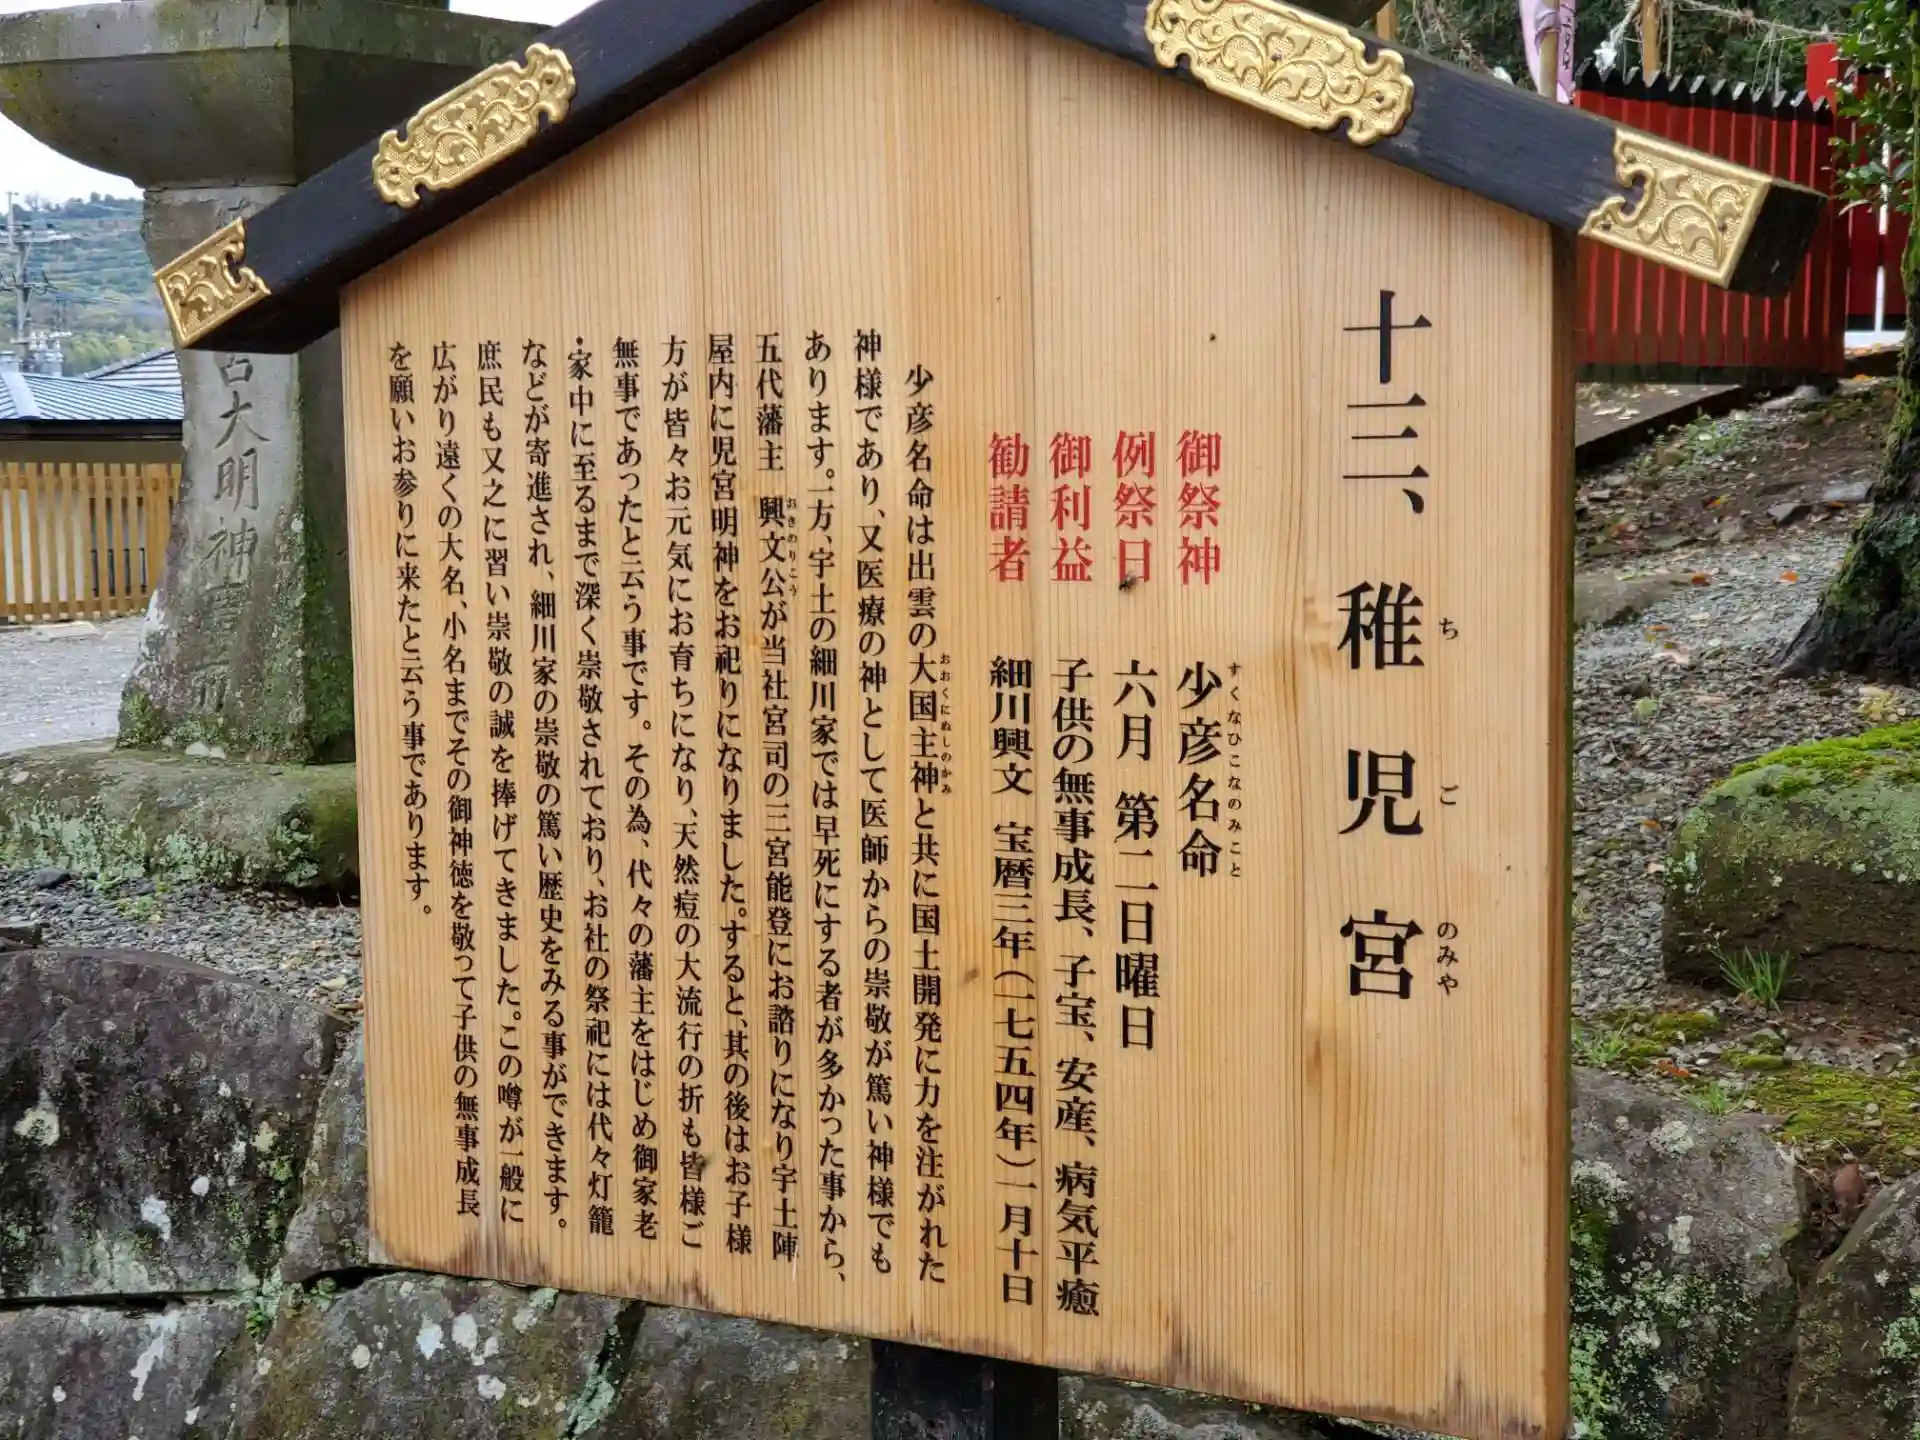 十三、稚児宮
ちごのみや
御祭神　少彦名命
すくなひこなのみこと
例祭日　六月 第二日曜日
御利益　子供の無事成長、子宝、安産、病気平癒
勧請者　細川興文 宝暦三年(一七五四年)一月十日
少彦名命は出雲の大国主神と共に国土開発に力を注がれた
おおくにぬしのかみ
神様であり、又医療の神として医師からの崇敬が篤い神様でも
あります。一方、宇土の細川家では早死にする者が多かった事から、
五代藩主　興文公が当社宮司の三宮能登にお諮りになり宇土陣
おきのりこう
屋内に児宮明神をお祀りになりました。すると、其の後はお子様
方が皆々お元気にお育ちになり、天然痘の大流行の折も皆様ご
無事であったと云う事です。その為、代々の藩主をはじめ御家老
・家中に至るまで深く崇敬されており、お社の祭祀には代々灯籠
などが寄進され、細川家の崇敬の篤い歴史をみる事ができます。
庶民も又之に習い崇敬の誠を捧げてきました。この噂が一般に
広がり遠くの大名、小名までその御神徳を敬って子供の無事成長
を願いお参りに来たと云う事であります。
大明神